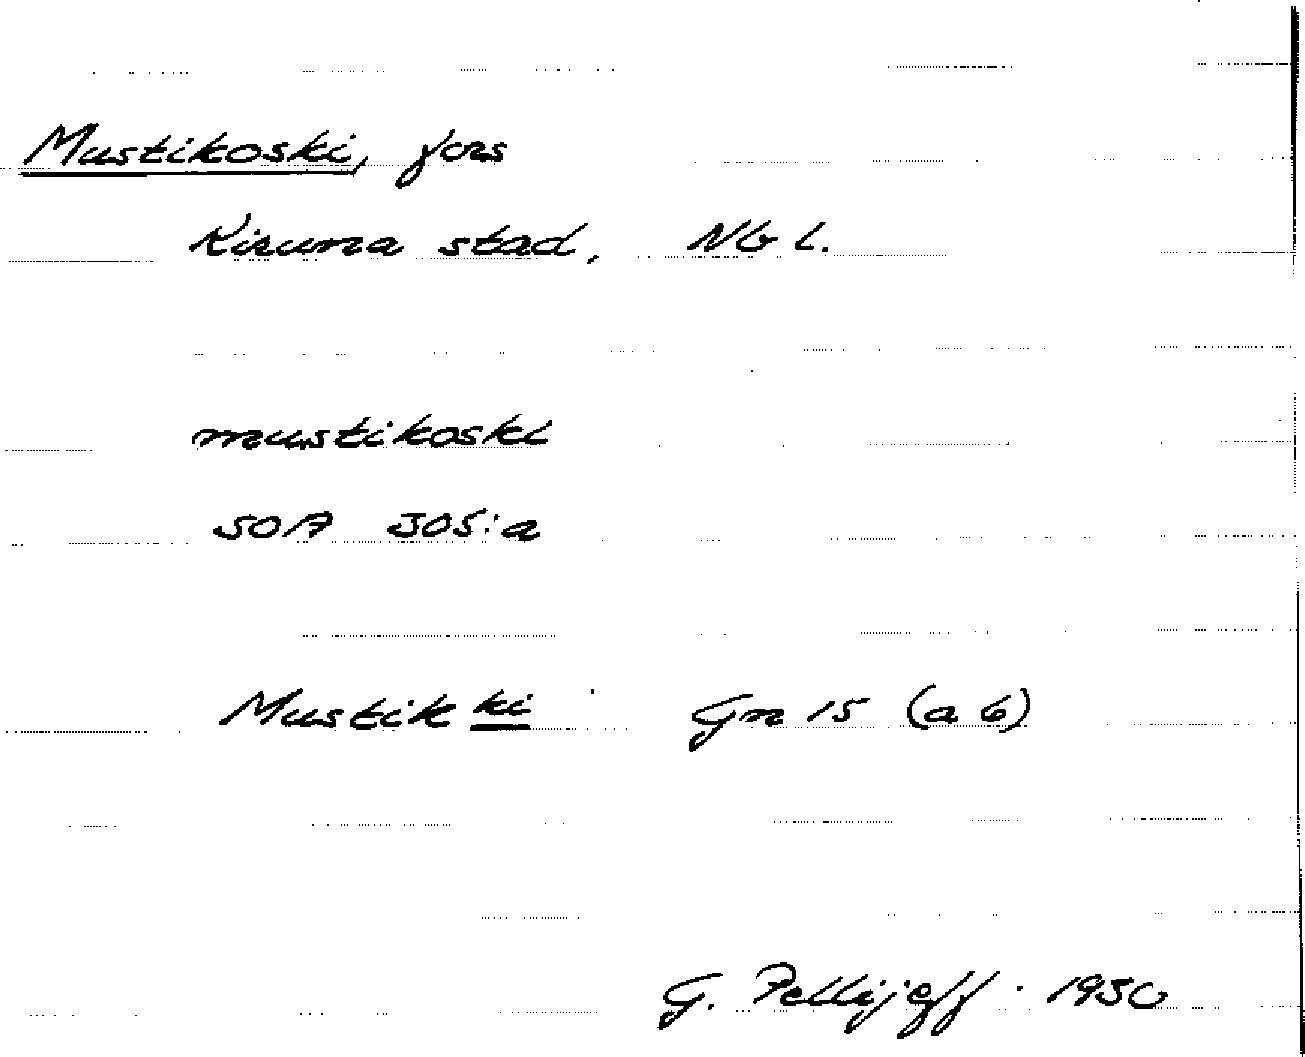 Mustikoski, fors
Kiruna stad, Nb l.
mustikoski
SOA 305:a
Mustikki Gn 15 (a 6)
G. Pellijeff. 1950